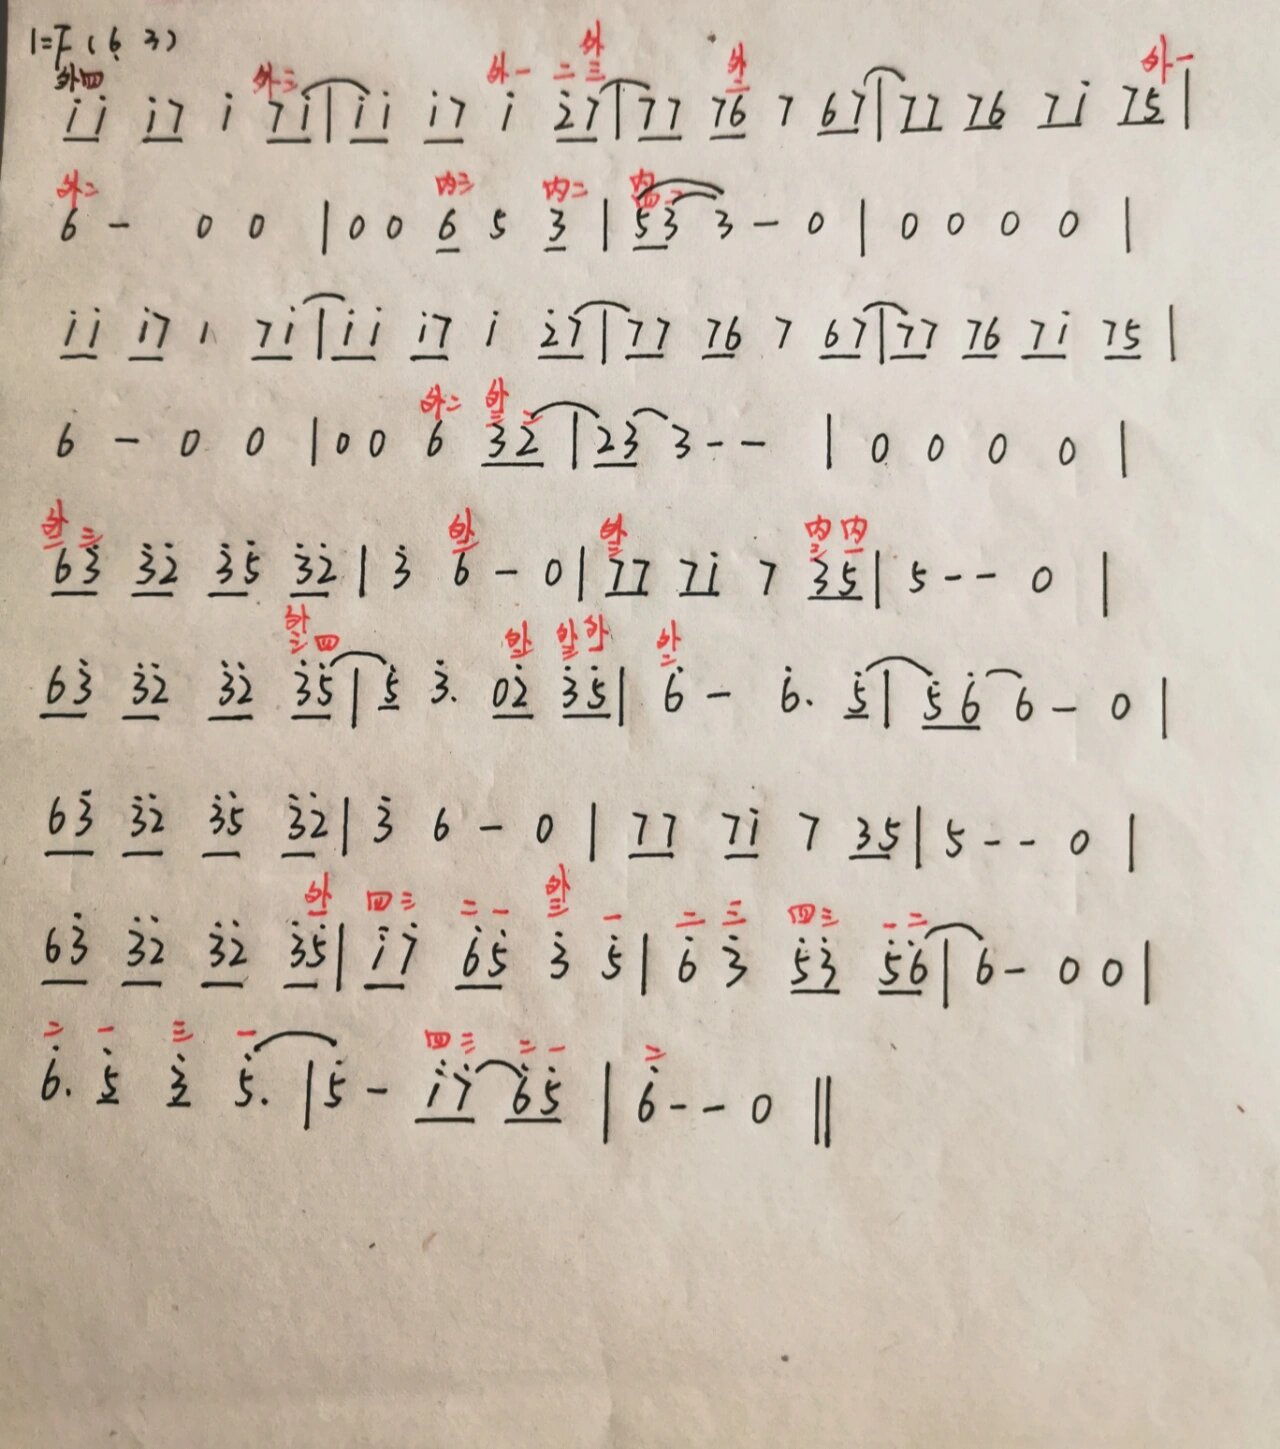 1=F(6̣ 3)
外四 外三 外一 二 外三 外二 外一
i̇i̇ i̇7 i̇ 7i̇|i̇i̇ i̇7 i̇ 2̇7|77 76 7 67|77 76 7i̇ 75|
外二 内三 内二 内四 二
6 - 0 0 |0 0 6 5 3 |53 3 - 0 | 0 0 0 0 |
i̇i̇ i̇7 i 7i̇|i̇i̇ i̇7 i̇ 2̇7|77 76 7 67|77 76 7i̇ 75|
外二 外三 二
6 - 0 0 |0 0 6 32 |23 3-- | 0 0 0 0 |
外二 三 外二 外三 内三 内一
63̇ 3̇2̇ 3̇5̇ 3̇2̇|3̇ 6 - 0|77 7i̇ 7 35|5-- 0 |
外三 四 外二 外三 外一 外二
63̇ 3̇2̇ 3̇2̇ 3̇5̇|5̇ 3̇. 02̇ 3̇5̇|6̇ - 6̇. 5̇|5̇6̇ 6 - 0|
63̇ 3̇2̇ 3̇5̇ 3̇2̇|3̇ 6 - 0 | 77 7i̇ 7 35|5-- 0 |
外一 四三 二一 外三 一 二 三 四三 一二
63̇ 3̇2̇ 3̇2̇ 3̇5̇|i̇7̇ 6̇5̇ 3̇ 5̇|6̇ 3̇ 5̇3̇ 5̇6̇|6- 0 0|
二 一 三 一 四三 二一 二
6̇. 5̇ 3̇ 5̇. |5̇ - i̇7̇ 6̇5̇ |6̇-- 0 ‖